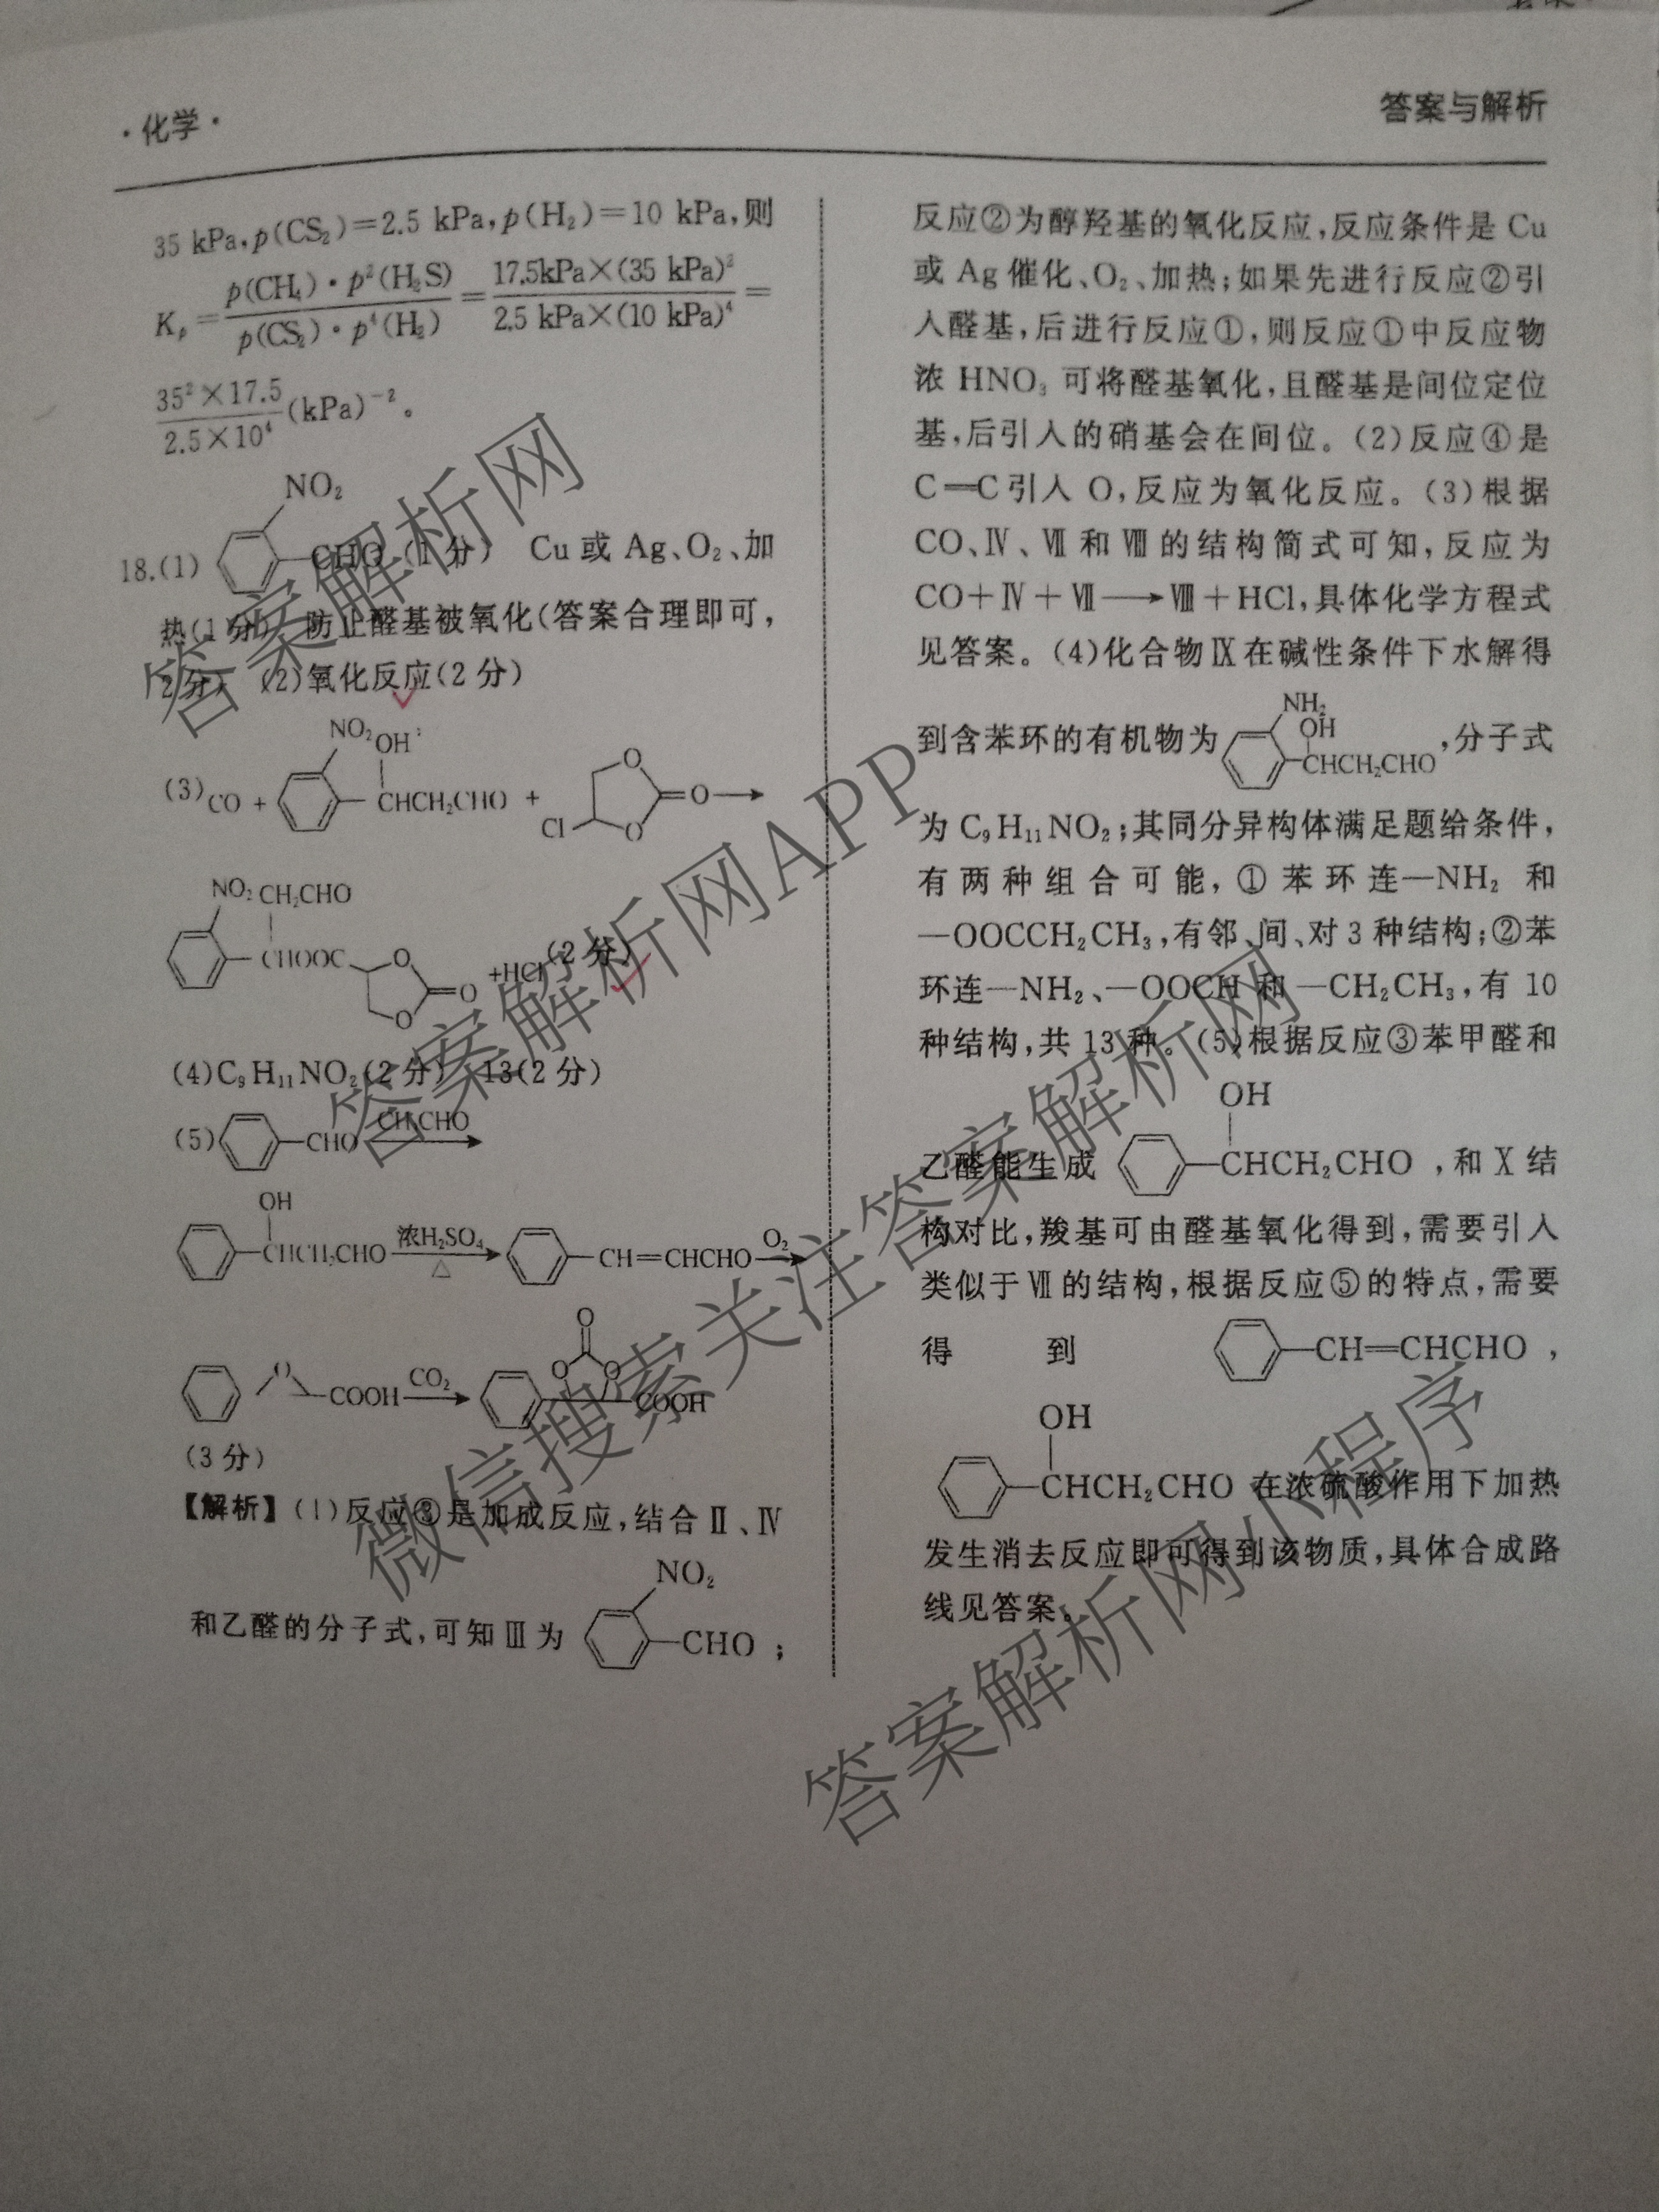 ·化学·
答案与解析
35 kPa,p(CS₂)=2.5 kPa,p(H₂)=10 kPa,则
Kₚ=p(CH₄)·p²(H₂S)/p(CS₂)·p⁴(H₂)=17.5kPa×(35 kPa)²/2.5 kPa×(10 kPa)⁴=
35²×17.5/2.5×10⁴(kPa)⁻²。
NO₂
18.(1) CHO (1分) Cu 或 Ag、O₂、加
热(1分) 防止醛基被氧化(答案合理即可,
2分) (2)氧化反应(2分)
NO₂ OH
(3)CO + CHCH₂CHO + Cl O O =O→
NO₂ CH₂CHO
CHOOC O O =O +HCl(2分)
(4)C₉H₁₁NO₂(2分) 13(2分)
(5) —CHO CH₃CHO→
OH
CHCH₂CHO 浓H₂SO₄ △ → —CH=CHCHO O₂→
O —COOH CO₂→ O O O COOH
(3分)
【解析】(1)反应③是加成反应,结合Ⅱ、Ⅳ
NO₂
和乙醛的分子式,可知Ⅲ为 —CHO ;
反应②为醇羟基的氧化反应,反应条件是 Cu
或 Ag 催化、O₂、加热;如果先进行反应②引
入醛基,后进行反应①,则反应①中反应物
浓 HNO₃ 可将醛基氧化,且醛基是间位定位
基,后引入的硝基会在间位。(2)反应④是
C=C引入 O,反应为氧化反应。(3)根据
CO、Ⅳ、Ⅶ和Ⅷ的结构简式可知,反应为
CO+Ⅳ+Ⅶ→Ⅷ+HCl,具体化学方程式
见答案。(4)化合物Ⅸ在碱性条件下水解得
NH₂
OH
到含苯环的有机物为 —CHCH₂CHO ,分子式
为 C₉H₁₁NO₂;其同分异构体满足题给条件,
有两种组合可能,①苯环连—NH₂ 和
—OOCCH₂CH₃,有邻、间、对3种结构;②苯
环连—NH₂、—OOCH 和—CH₂CH₃,有 10
种结构,共 13 种。(5)根据反应③苯甲醛和
OH
乙醛能生成 —CHCH₂CHO ,和 X 结
构对比,羧基可由醛基氧化得到,需要引入
类似于Ⅶ的结构,根据反应⑤的特点,需要
得到 —CH=CHCHO ,
OH
—CHCH₂CHO 在浓硫酸作用下加热
发生消去反应即可得到该物质,具体合成路
线见答案。
答案解析网
答案解析网APP
微信搜索关注答案解析网
答案解析网小程序